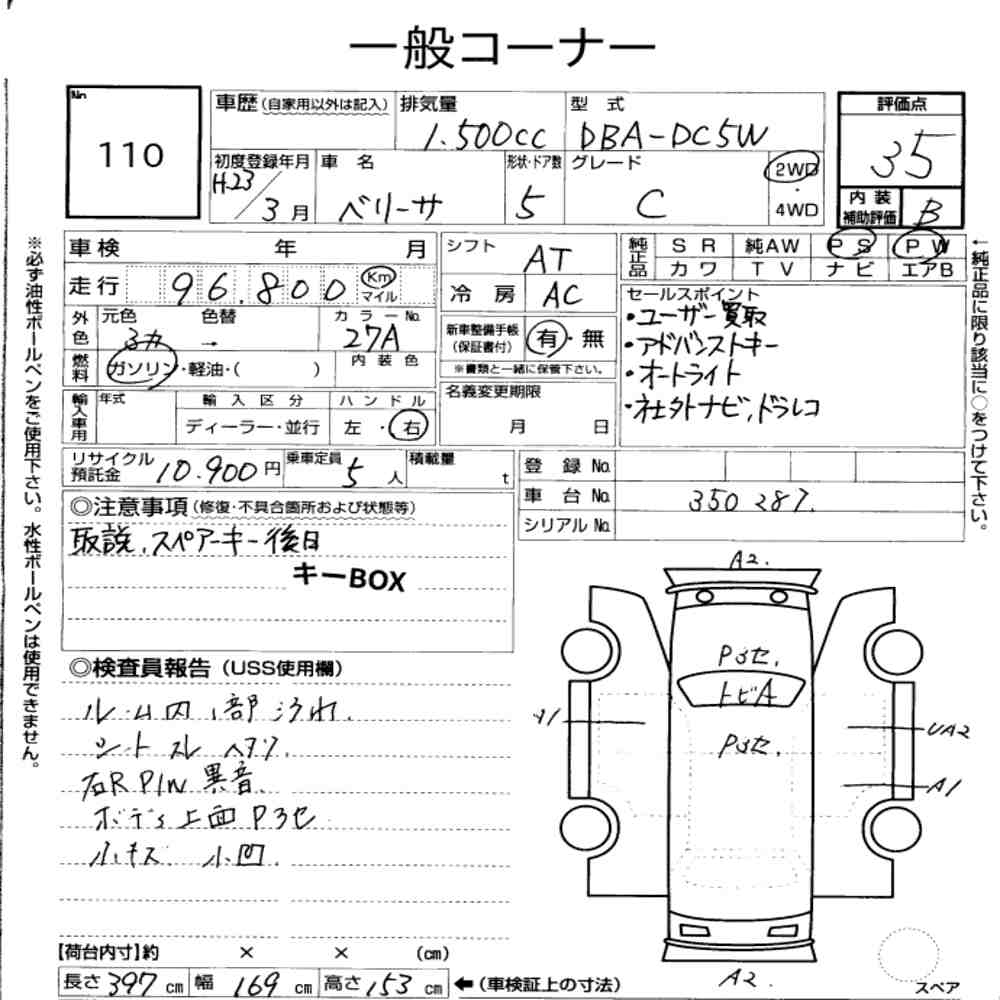 一般コーナー
No. 110
車歴(自家用以外は記入) 排気量 1.500cc 型式 DBA-DC5W
評価点 35
初度登録年月 H.23/3月 車名 ベリーサ 形状・ドア数 5 グレード C 2WD・4WD
内装補助評価 B
車検 年 月
シフト AT
純正品 SR 純AW PS PW
カワ TV ナビ エアB
走行 96.800 Km マイル
冷房 AC
セールスポイント
・ユーザー買取
・アドバンストキー
・オートライト
・社外ナビ,ドラレコ
外色 元色 3カ → 色替 カラーNo. 27A
新車整備手帳(保証書付) 有・無
※書類と一緒に保管下さい。
燃料 ガソリン・軽油・( ) 内装色
名義変更期限 月 日
輸入車用 年式 輸入区分 ディーラー・並行 ハンドル 左・右
リサイクル預託金 10.900円 乗車定員 5人 積載量 t
登録No.
車台No. 350287.
シリアルNo.
◎注意事項(修復・不具合箇所および状態等)
取説.スペアーキー後日
キーBOX
◎検査員報告(USS使用欄)
ルーム内1部汚れ.
シートスレ ヘタリ.
右R P/W 異音.
ボデー上面Pヨセ
小キズ 小凹.
A2.
Pヨセ.
トビA
A1
UA2
Pヨセ.
A1
A2.
スペア
【荷台内寸】約 × × (cm)
長さ 397 cm 幅 169 cm 高さ 153 cm ←(車検証上の寸法)
※必ず油性ボールペンをご使用下さい。水性ボールペンは使用できません。
←純正品に限り該当に○をつけて下さい。